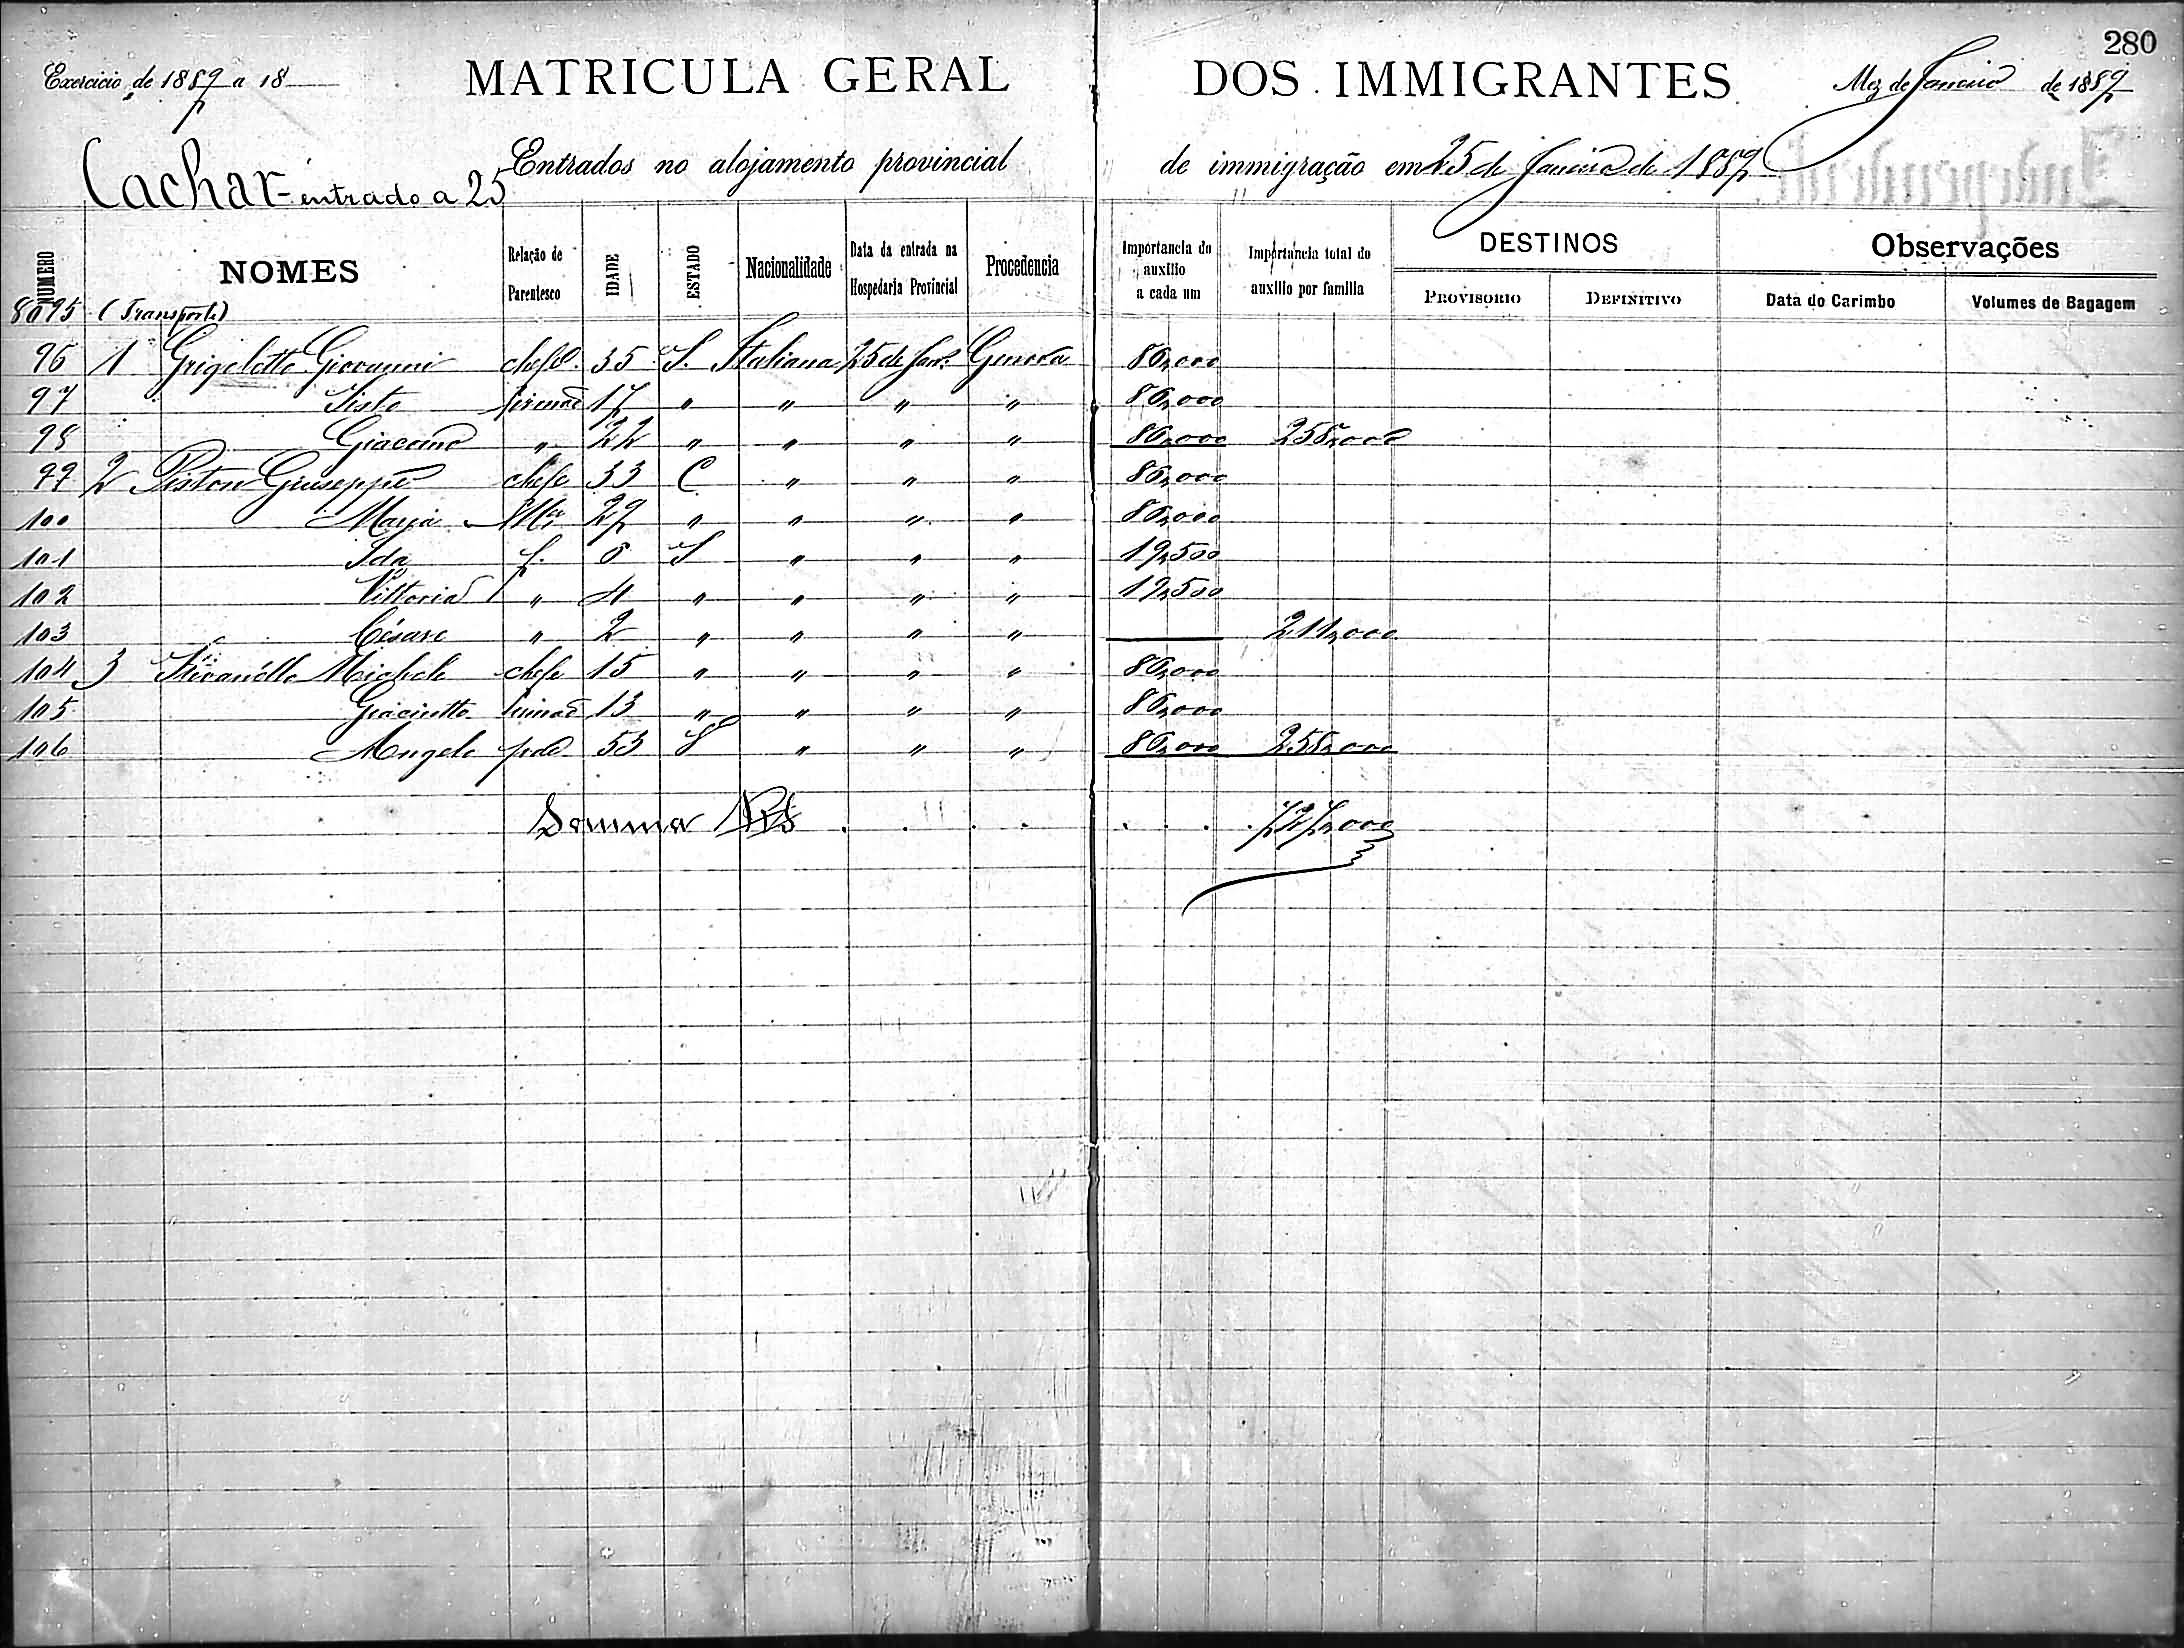 280
Exercicio de 1889 a 18
MATRICULA GERAL DOS IMMIGRANTES
Mez de Janeiro de 1889
Entrados no alojamento provincial de immigração em 25 de Janeiro de 1889
Cachar - entrado a 25
NUMERO NOMES Relação de Parentesco IDADE ESTADO Nacionalidade Data da entrada na Hospedaria Provincial Procedencia Importancia do auxilio a cada um Importancia total do auxilio por familia DESTINOS Observações
PROVISORIO DEFINITIVO Data do Carimbo Volumes de Bagagem
8095 (Transporte)
96 1 Grigoletto Giovanni chefe 35 S. Italiana 25 de Janº Genova 86,000
97 Sisto irmão 17 " " " " 86,000
98 Giacomo " 22 " " " " 86,000 258,000
99 2 Piston Giuseppe chefe 33 C " " " 86,000
100 Maria Mer 29 " " " " 86,000
101 Ida f. 6 S " " " 19,500
102 Vittoria " 4 " " " " 19,500
103 Césare " 2 " " " " 211,000
104 3 Michele chefe 15 " " " " 86,000
105 Giacintto irmão 13 " " " " 86,000
106 Angelo pae 53 " " " 86,000 258,000
Somma Rs 727,000